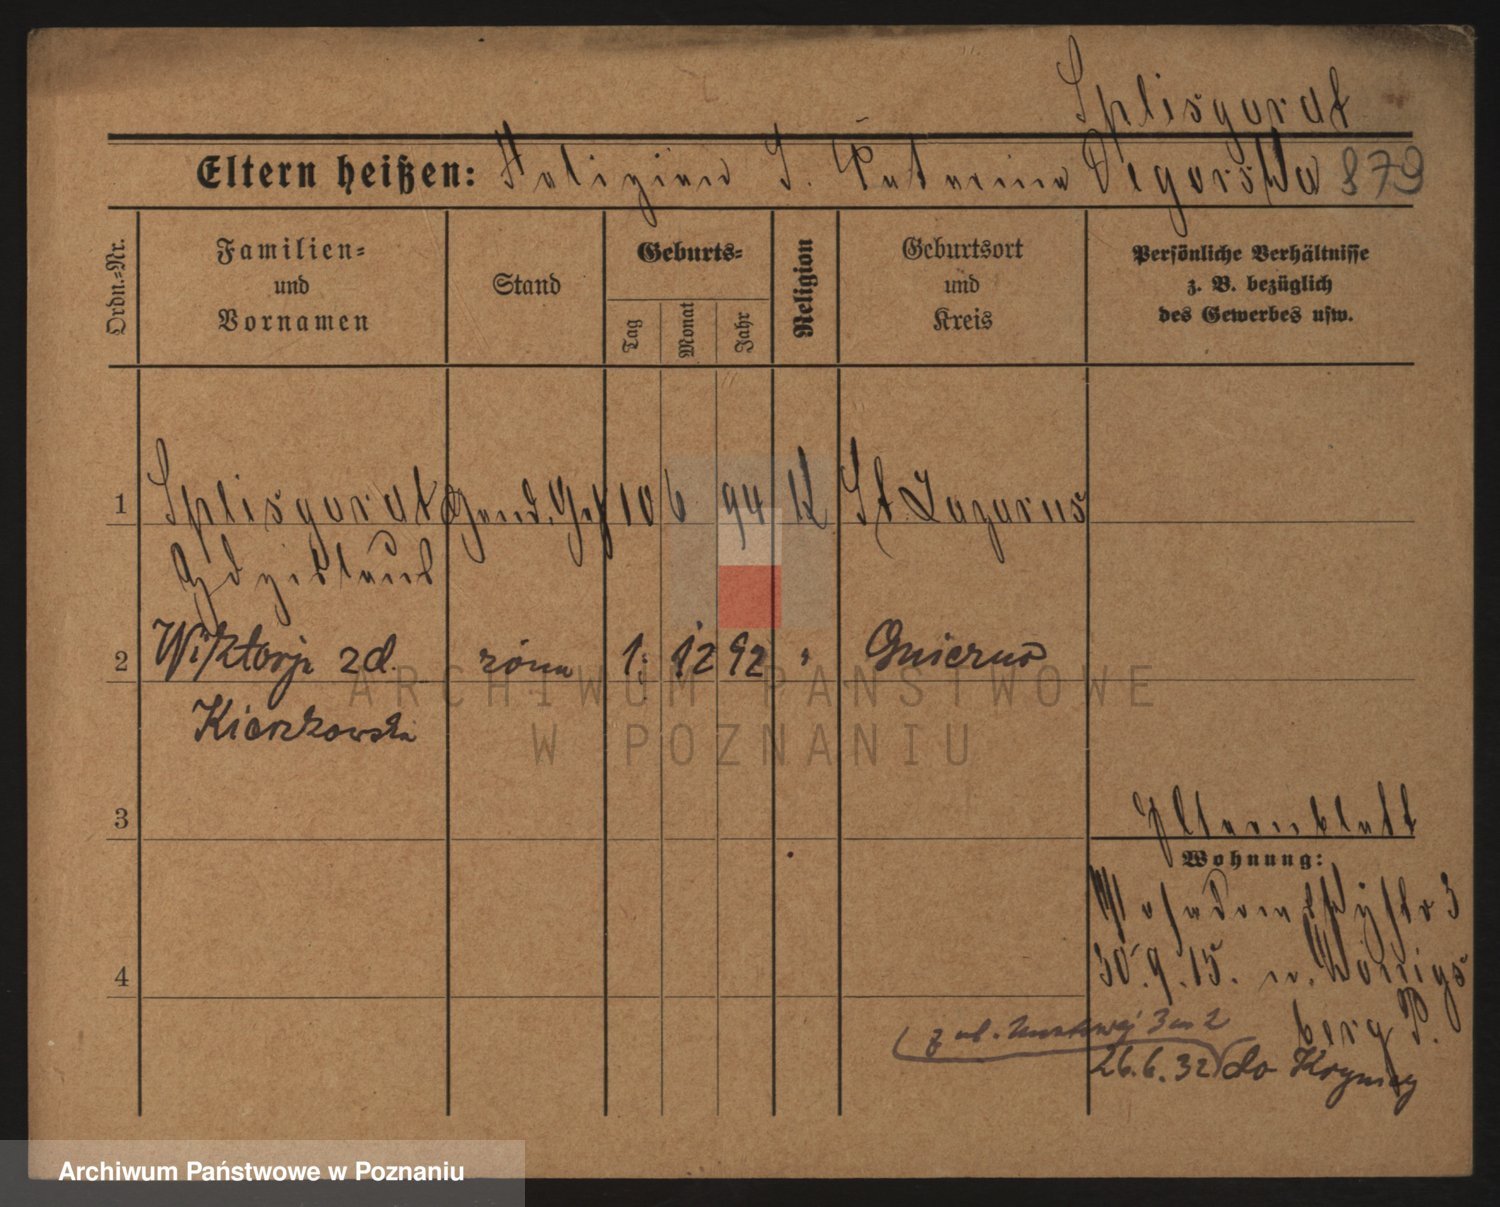 Splisgardt
Eltern heißen: Felizian S. Katarina Degorska 879
Ordn.=Nr.
Familien=
und
Vornamen
Stand
Geburts=
Tag
Monat
Jahr
Religion
Geburtsort
und
Kreis
Persönliche Verhältnisse
z. B. bezüglich
des Gewerbes usw.
1 Splisgardt 10 6 94 K St. Lazarus
Zdzislaus
2 Wiktorja zd. żona 1. 12 92 " Gniezno
Kierzkowska
ARCHIWUM PAŃSTWOWE
W POZNANIU
3 Elternblatt
Wohnung:
3
4 30.9.15. n. Königs
berg P.
3 m 2
26.6.32 do Krynicy
Archiwum Państwowe w Poznaniu